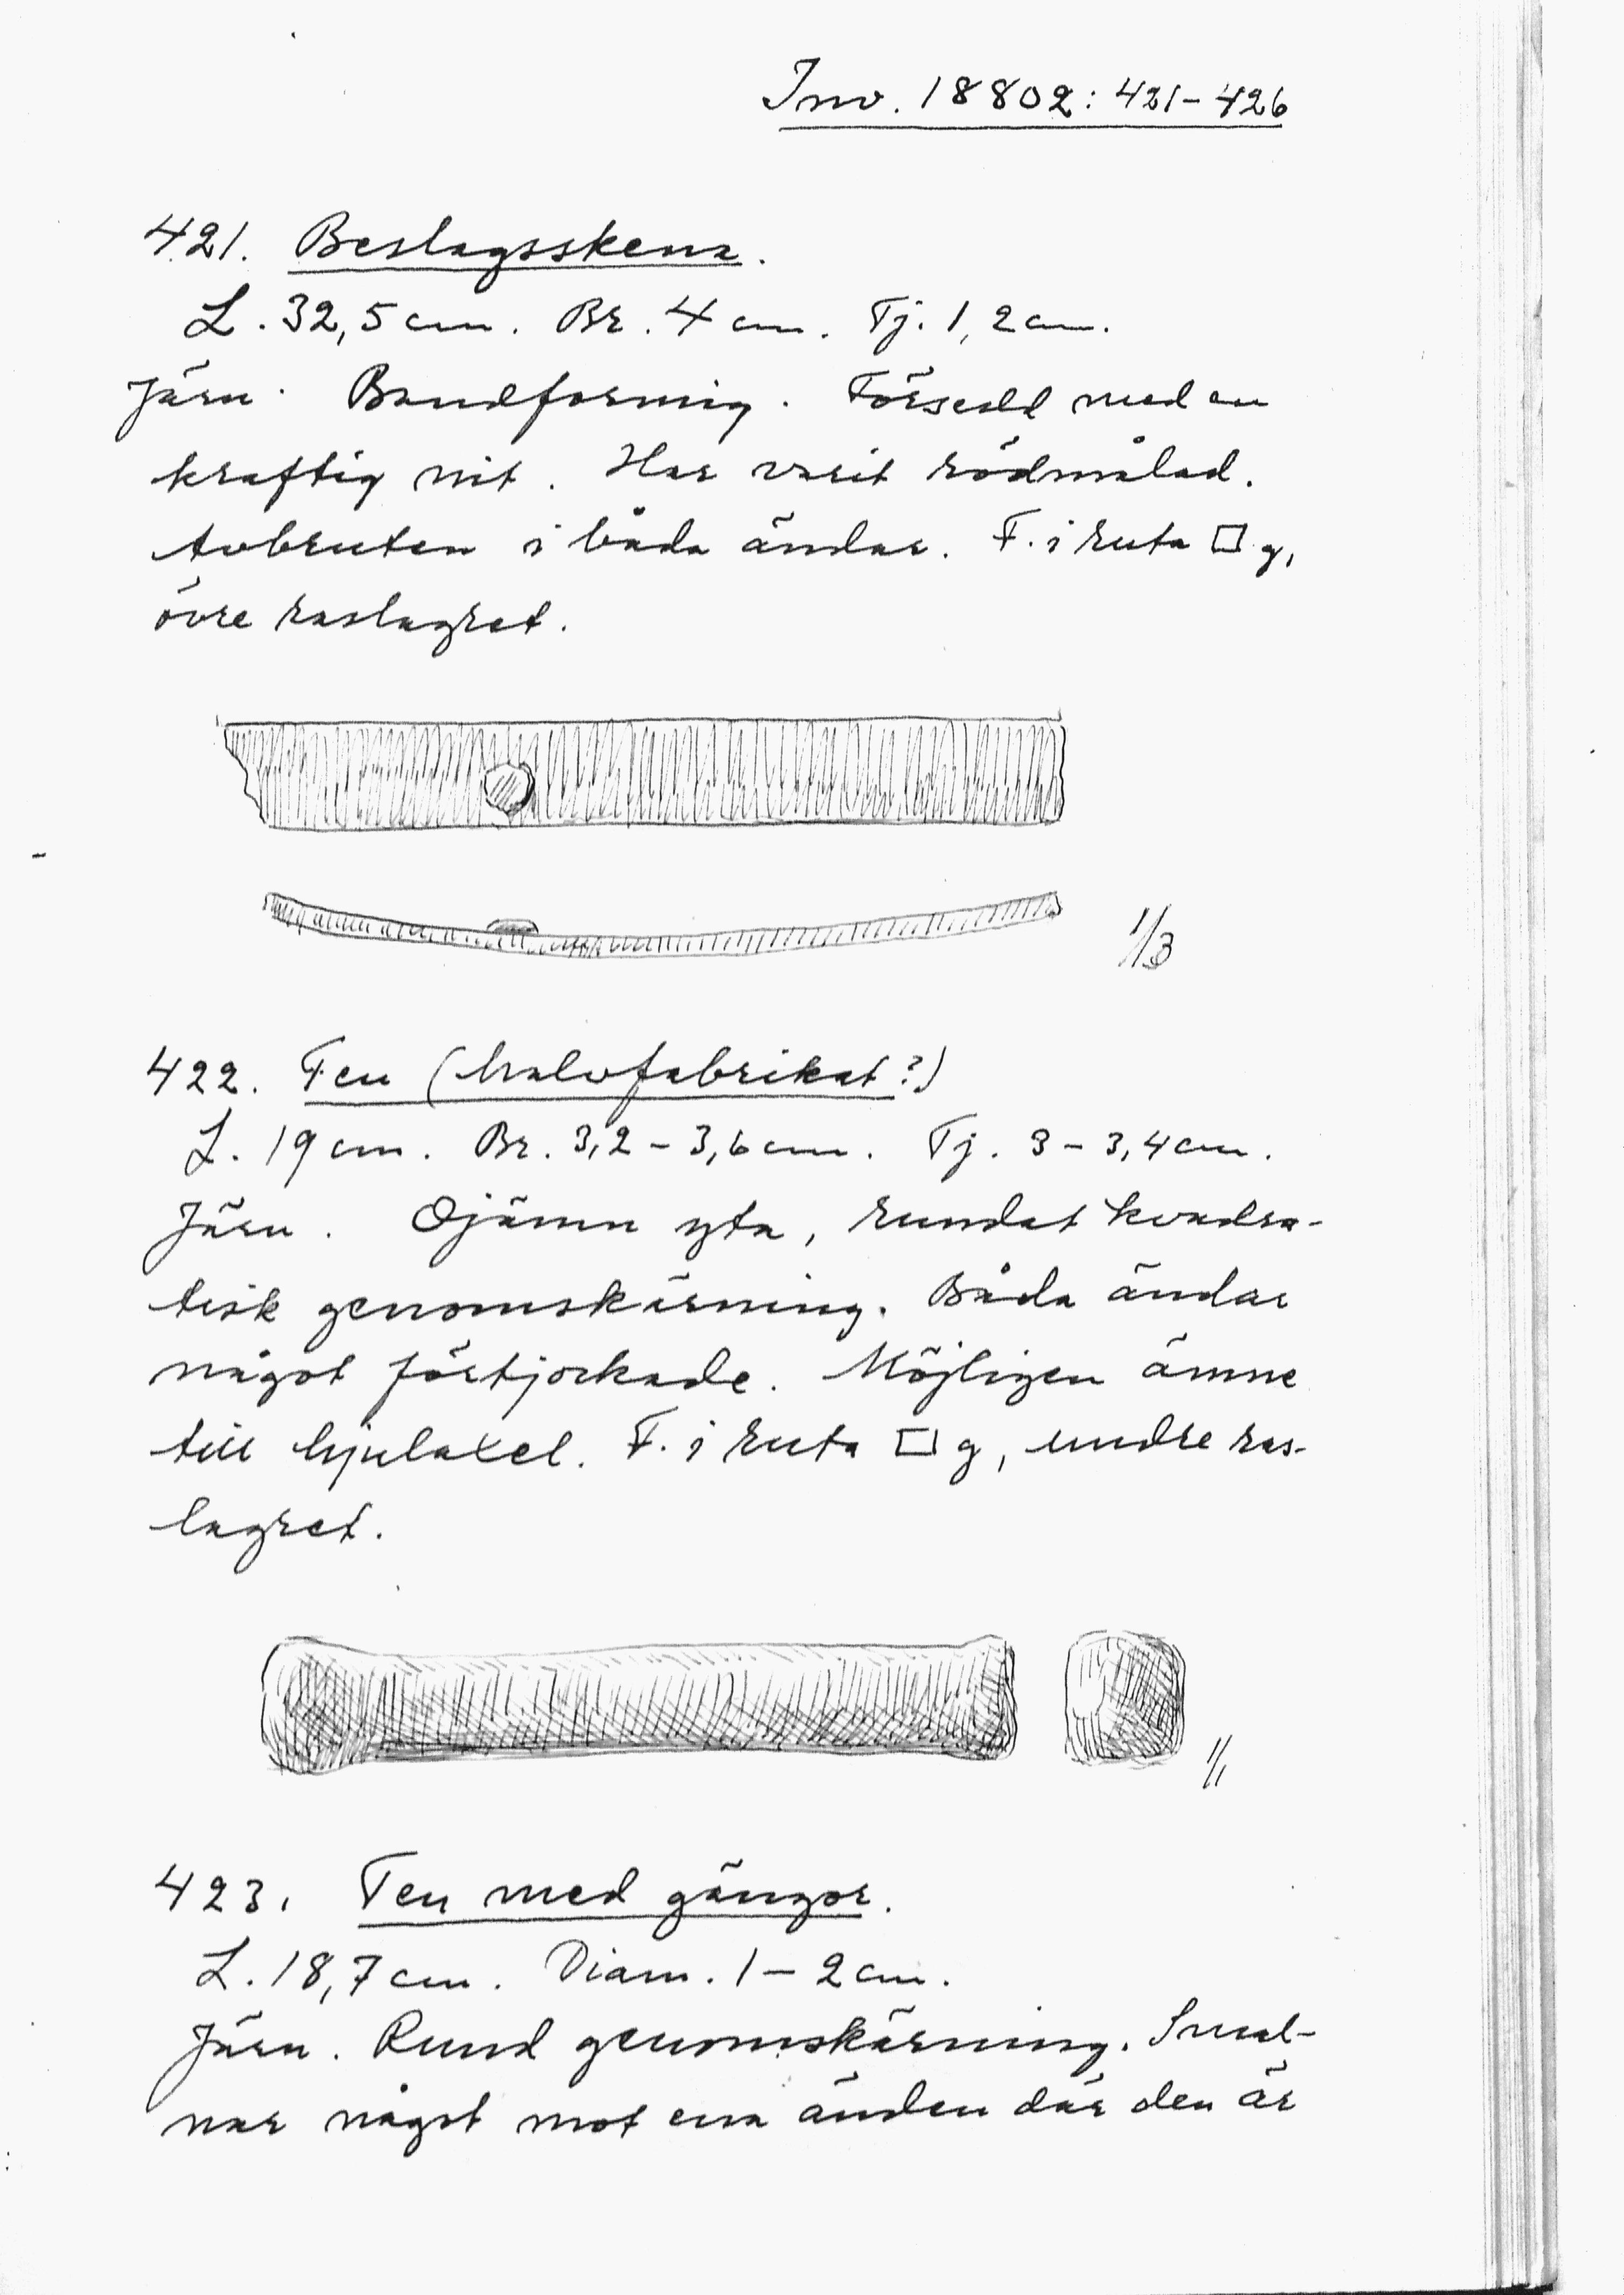 Inv. 18802: 421-426
421. Beslagsskena.
L. 32,5 cm. Br. 4 cm. Tj. 1,2 cm.
Järn. Bandformig. Försedd med en
kraftig nit. Har varit rödmålad.
Avbruten i båda ändar. F. i ruta □ g,
övre raslagret.
1/3
422. Ten (halvfabrikat?)
L. 19 cm. Br. 3,2 - 3,6 cm. Tj. 3 - 3,4 cm.
Järn. Ojämn yta, rundat kvadra-
tisk genomskärning. Båda ändar
något förtjockade. Möjligen ämne
till hjulaxel. F. i ruta □ g, undre ras-
lagret.
1/1
423. Ten med gängor.
L. 18,7 cm. Diam. 1 - 2 cm.
Järn. Rund genomskärning. Smal-
nar något mot ena änden där den är